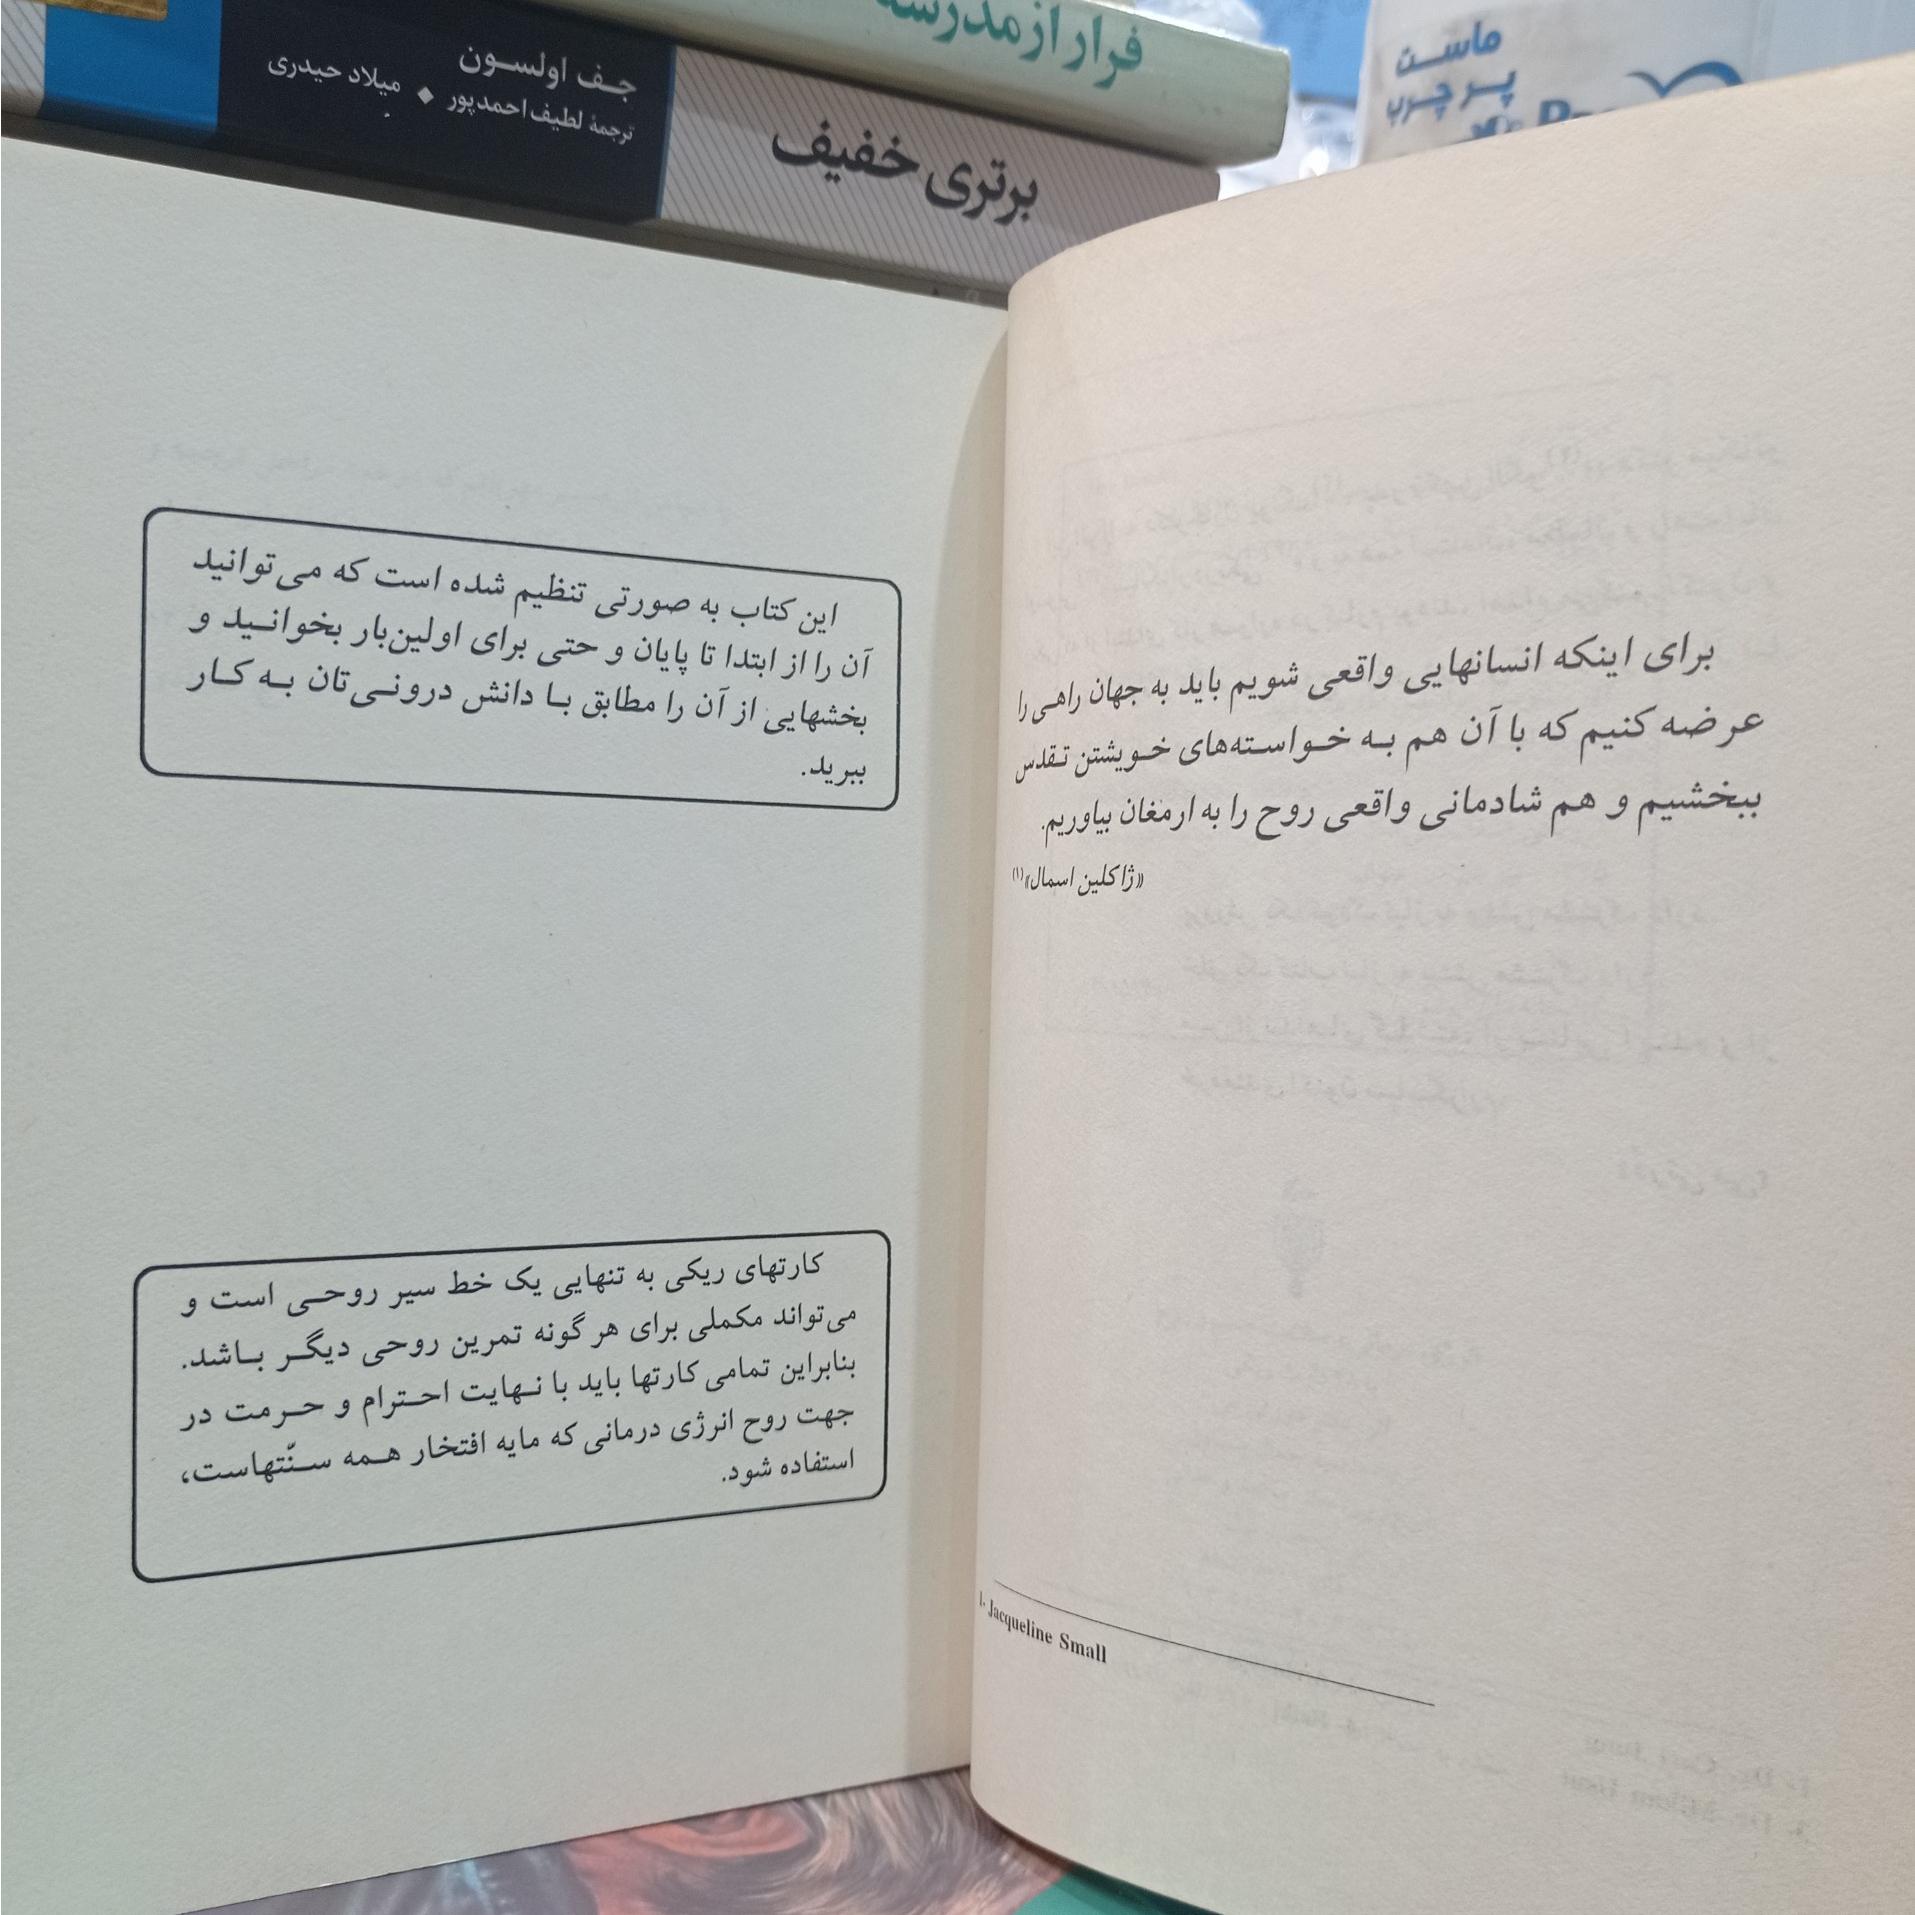 فرار از مدرسه
جف اولسون
ترجمهٔ لطیف احمدپور ◆ میلاد حیدری
برتری خفیف
ماست
پر چرب
برای اینکه انسانهایی واقعی شویم باید به جهان راهی را
عرضه کنیم که با آن هم به خواسته‌های خویشتن تقدس
ببخشیم و هم شادمانی واقعی روح را به ارمغان بیاوریم.
«ژاکلین اسمال»(۱)
1- Jacqueline Small
این کتاب به صورتی تنظیم شده است که می‌توانید
آن را از ابتدا تا پایان و حتی برای اولین‌بار بخوانید و
بخشهایی از آن را مطابق با دانش درونی‌تان به کار
ببرید.
کارتهای ریکی به تنهایی یک خط سیر روحی است و
می‌تواند مکملی برای هر گونه تمرین روحی دیگر باشد.
بنابراین تمامی کارتها باید با نهایت احترام و حرمت در
جهت روح انرژی درمانی که مایه افتخار همه سنّتهاست،
استفاده شود.